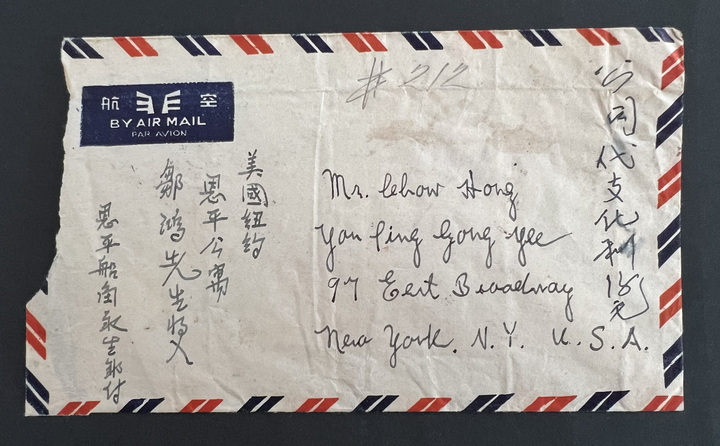 航 空
BY AIR MAIL
PAR AVION
# 212
公司代支化
美國紐約
恩平公寓
鄒鴻先生收入
恩平船角永生鄒付
Mr. Chow Hong
Yan Ping Gong Yee
97 East Broadway
New York, N.Y. U.S.A.